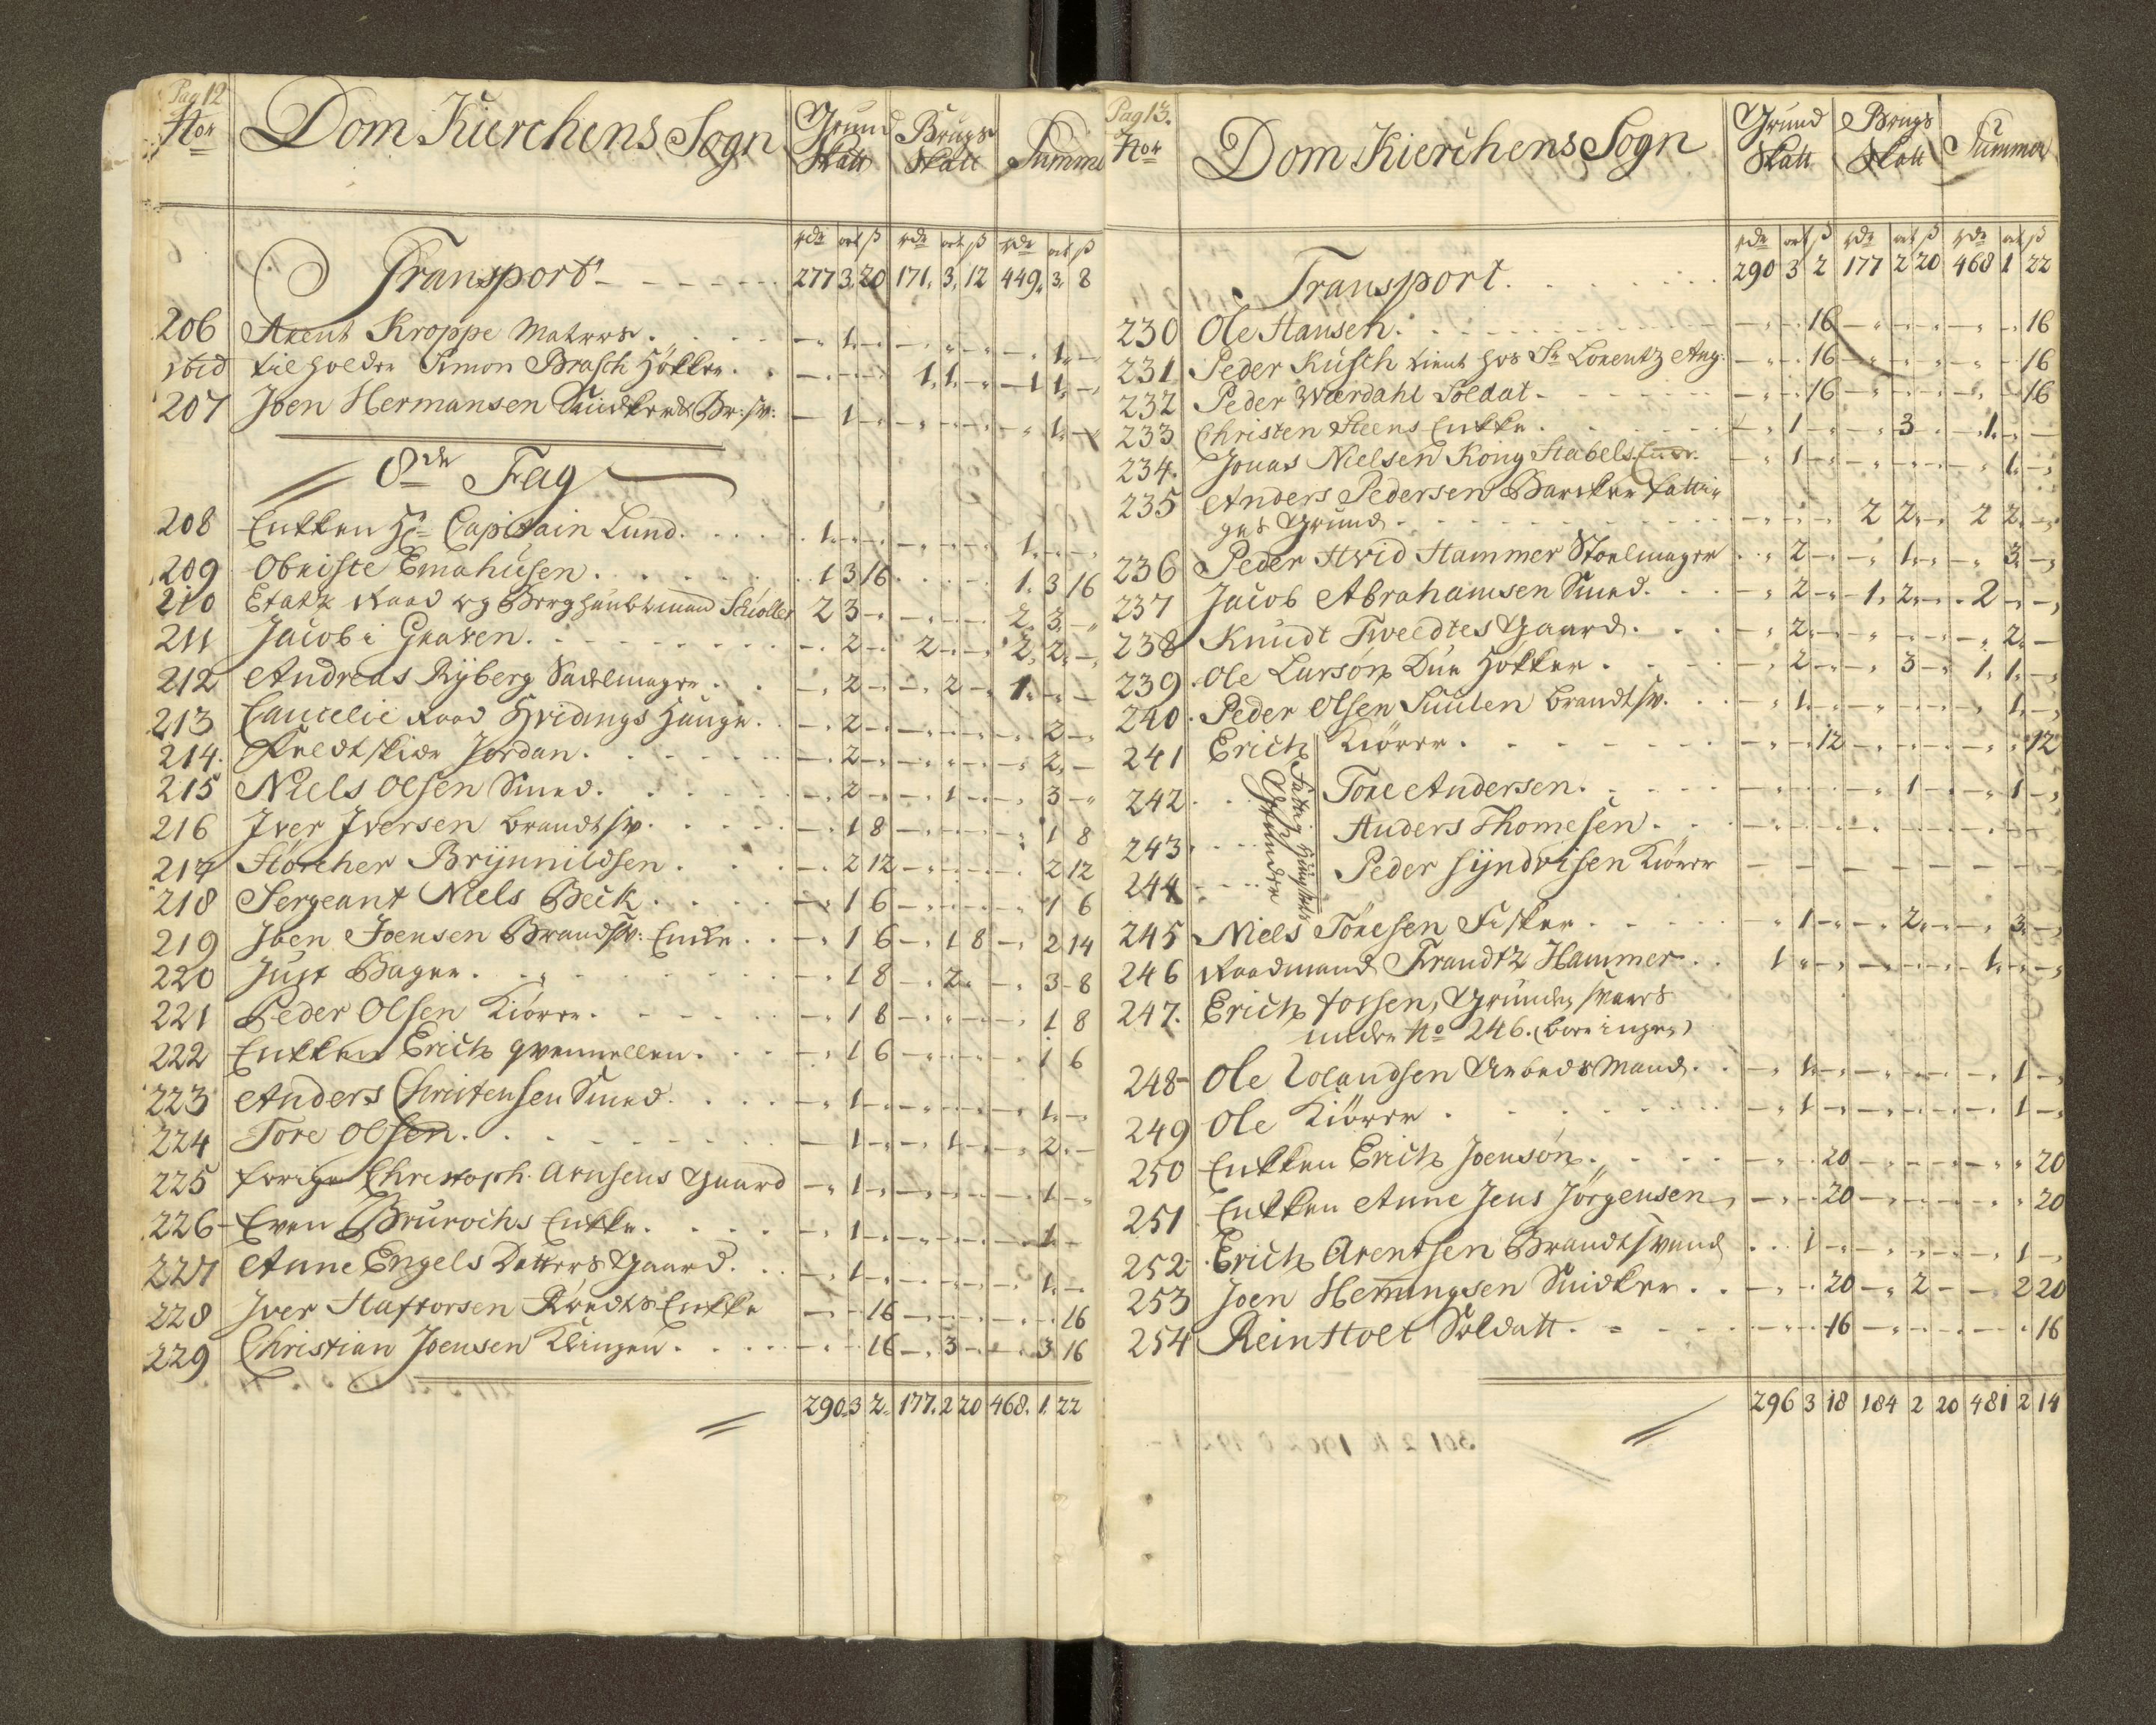 Pag 12
Nor Dom Kierchens Sogn Grund Skatt Brugs Skatt Summa
rdr ort ß rdr ort ß rdr ort ß
Transport 277 3. 20 171. 3. 12 449. 3. 8
206 Arent Kroppe Matros. 1. 1.
ibid tilholder Simon Brasch Høkker. 1. 1. 1 1.
207 Joen Hermansen Snidkers Br: sv: 1 1.
8de Fag
208 Enkken Hr Capitain Lund. 1. 1.
209 Obriste Emahusen. 1 3 16 1. 3 16
210 Etatz Raad og Berghaubtmand Schiøller 2 3 2. 3.
211 Jacob i Graven. 2 2 2. 2.
212 Andreas Ryberg Sadelmager. 2 2 1.
213 Cancelie Raad Hvidings Hauge. 2 2
214. Feldtskier Jordan. 2 2.
215 Niels Olsen Smed. 2 1 3
216 Iver Iversen Brandtsv. 1 8 1 8
217 Storcher Brynnildsen. 2 12 2 12
218 Sergeant Niels Beck. 1 6 1 6
219 Joen Joensen Brandsv: Enke. 1 6 1 8 2 14
220 Just Bager. 1 8 2. 3 8
221 Peder Olsen Kiører. 1 8 1 8
222 Enkken Erich qvernellen. 1 6 1 6
223 Anders Christensen Smed. 1 1.
224 Tore Olsen. 1 1. 2.
225 forige Christoph. Arnsens Gaard 1 1
226 Even Brurochs Enkke. 1 1
227 Anne Engels Datters Gaard. 1 1.
228 Iver Haftorsen Røedts Enkke 16 16
229 Christian Joensen Klingen. 16 3 3 16
290. 3 2. 177. 2 20 468. 1. 22
Pag 13.
Nor Dom Kierchens Sogn Grund Skatt Brugs Skatt Summa
rdr ort ß rdr ort ß rdr ort ß
Transport. 290 3 2 177 2 20 468 1 22
230 Ole Hansen. 16 16
231 Peder Kusch tient hos Sr Lorentz Ang: 16 16
232 Peder Werdahl Soldat 16 16
233 Christen Steens Enkke. 1 3 1.
234. Jonas Nielsen Kong Stabels 1 1.
235 Anders Pedersen Barcker fattig
ges Grund 2 2. 2 2.
236 Peder Hvid Hammer Stoelmager 2 1. 3
237 Jacob Abrahamsen Smed. 2 1. 2. 2
238 Knudt Tweedtes Gaard. 2. 2.
239. Ole Larsøn Due Høkker. 2 3 1. 1.
240. Peder Olsen Suulen Brandtsv. 1. 1.
241 Erich Kiörer. 12 12
242 Tore Andersen. 1 1
243 Anders Thomesen.
244 Peder syndvisen Kiörer
Fattig Huusets
Grunder
245 Niels Tøresen Fisker 1 2. 3.
246 Raadmand Frandtz Hammer. 1 1.
247. Erich tossen, Grunden svares
under No 246.
248 Ole Rolandsen Arbeds Mand. 1. 1
249 Ole Kiörer. 1 1
250 Enkken Erich Joensøn. 20 20
251 Enkken Anne Jens Jörgensen 20 20
252 Erich Arentsen Brandtsvend 1 1
253 Joen Hemmingsen Snidker. 20 2 2 20
254 Rein Holt Soldatt. 16 16
296 3 18 184 2 20 481 2 14